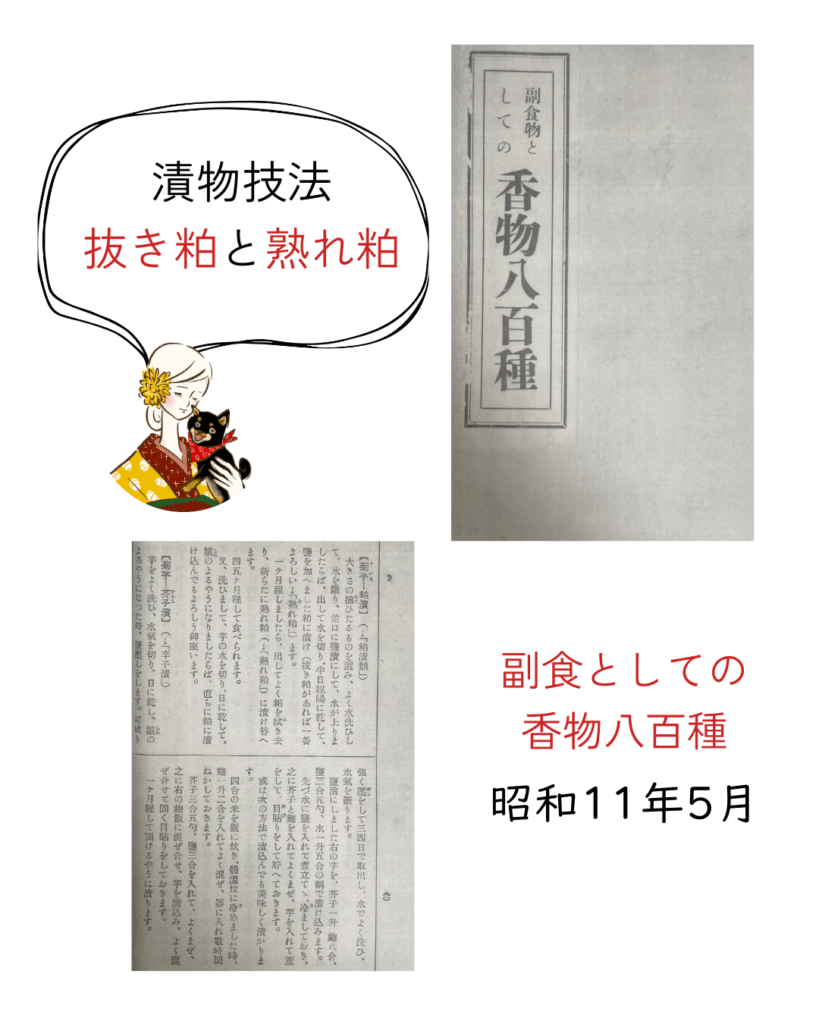 漬物技法
抜き粕と熟れ粕
副食物と
しての
香物八百種
【菊芋―粕漬】(→「粕漬類」)
大きさの揃ひたるものを選み、よく水洗ひし
て、水を斷り、並口に鹽漬にして、水が上りま
したらば、出して水を切り、半日程陽に乾して、
鹽を加へました粕に漬け(拔き粕があれば一番
よろしい―「熟れ粕」)ます。
一ケ月程しましたら、出してよく粕を拭き去
り、新らたに熟れ粕(→「熟れ粕」)に漬け替へ
ます。
四五ケ月程して食べられます。
又、洗ひまして、芋の水を切り、日に乾して、
皺のよるやうになりましたらば、直ちに粕に漬
け込んでもよろしう御座います。
【菊芋―芥子漬】(→「辛子漬」)
芋をよく洗ひ、水氣を切り、日に乾し、皺の
よるやうになつた時、鹽壓しをします。可成り
強く壓をして三四日で取出し、水でよく洗ひ、
水氣を斷ります。
鹽漬にしました右の芋を、芥子一升 麹八合、
鹽三合五勺、水一升五合の割で漬け込みます。
先づ水に鹽を入れて煮立て、冷ましておき、
之に芥子と麹を入れてよくまぜ、芋を入れて蓋
をして、目貼りをして貯へておきます。
或は次の方法で漬込んでも美味しく漬かりま
す。
四合の米を飯に炊き、體溫位に冷めました時、
麹一升二合を入れてよく混ぜ、器に入れ數時間
ねかしておきます。
芥子三合五勺、鹽三合を入れて、よくまぜ、
之に右の麹飯に混ぜ合せ、芋を漬込み、よく混
ぜ合せて固く目貼りをしておきます。
一ケ月程して頂けるやうに漬ります。
副食としての
香物八百種
昭和11年5月